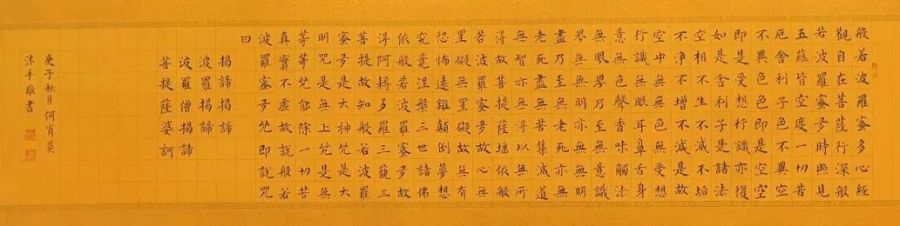 般若波羅蜜多心經
觀自在菩薩行深般
若波羅蜜多時照見
五蘊皆空度一切苦
厄舍利子色不異空空
不異色色即是空空
即是色受想行識亦復
如是舍利子是諸法
空相不生不滅不垢
不淨不增不減是故
空中無色無受想
行識無眼耳鼻舌身
意無色聲香味觸法
無眼界乃至無意識
界無無明亦無無明
盡乃至無老死亦無
老死盡無苦集滅道
無智亦無得以無所
得故菩提薩埵依般
若波羅蜜多故心無
罣礙無罣礙故無有
恐怖遠離顛倒夢想
究竟涅槃三世諸佛
依般若波羅蜜多故
得阿耨多羅三藐三
菩提故知般若波羅
蜜多是大神咒是大
明咒是無上咒是無
等等咒能除一切苦
真實不虛故說般若
波羅蜜多咒即說咒
曰
揭諦揭諦
波羅揭諦
波羅僧揭諦
菩提薩婆訶
庚子秋月何宵莫
沐手敬書